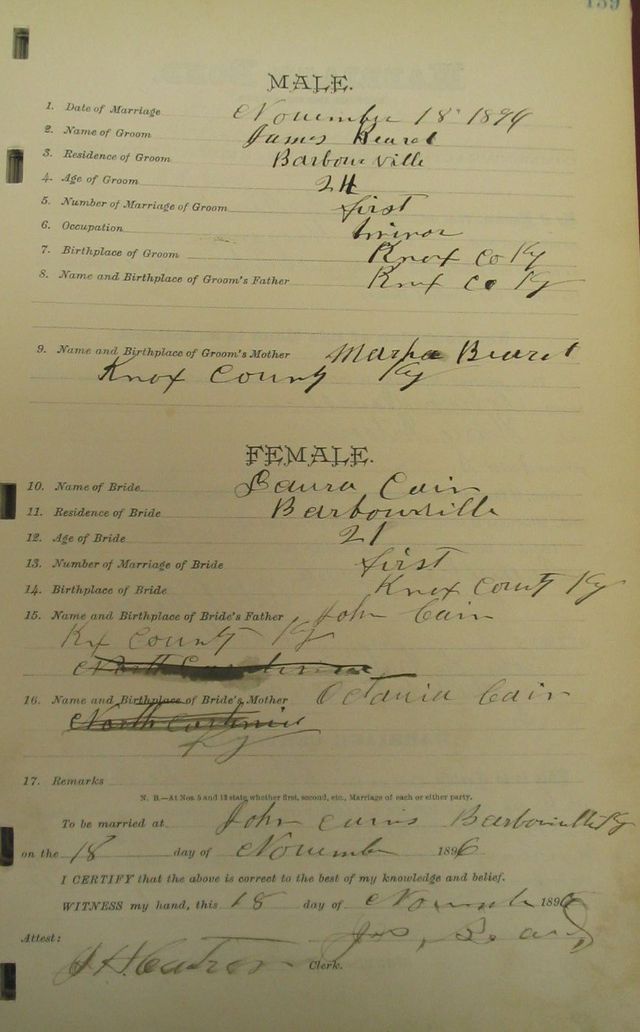 139
MALE.
1. Date of Marriage November 18 1896
2. Name of Groom James Beard
3. Residence of Groom Barbourville
4. Age of Groom 24
5. Number of Marriage of Groom first
6. Occupation
7. Birthplace of Groom Knox Co Ky
8. Name and Birthplace of Groom's Father Knox Co Ky
9. Name and Birthplace of Groom's Mother Beard
Knox County Ky
FEMALE.
10. Name of Bride Laura Cain
11. Residence of Bride Barbourville
12. Age of Bride 21
13. Number of Marriage of Bride first
14. Birthplace of Bride Knox County Ky
15. Name and Birthplace of Bride's Father John Cain
Kx County Ky
16. Name and Birthplace of Bride's Mother Octavia Cain
North Carolina
Ky
17. Remarks
N. B.—At Nos. 5 and 13 state whether first, second, etc., Marriage of each or either party.
To be married at John Cains Barbourville Ky
on the 18 day of November 1896
I CERTIFY that the above is correct to the best of my knowledge and belief.
WITNESS my hand, this 18 day of November 1896
Jas. Beard
Attest:
Clerk.